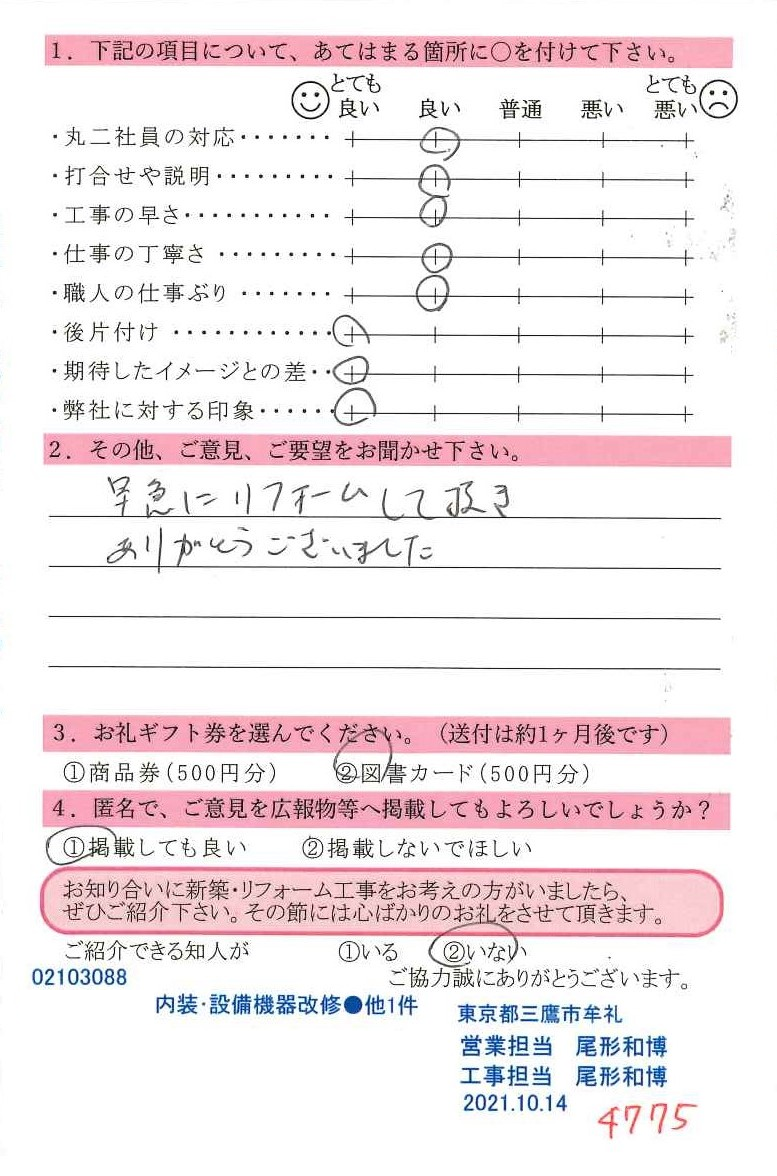 1. 下記の項目について、あてはまる箇所に○を付けて下さい。
とても良い 良い 普通 悪い とても悪い
・丸二社員の対応・・・・・・・
・打合せや説明・・・・・・・・・
・工事の早さ・・・・・・・・・・・
・仕事の丁寧さ・・・・・・・・・
・職人の仕事ぶり・・・・・・・
・後片付け・・・・・・・・・・・・
・期待したイメージとの差・・
・弊社に対する印象・・・・・・
2. その他、ご意見、ご要望をお聞かせ下さい。
早急にリフォームして頂き
ありがとうございました
3. お礼ギフト券を選んでください。(送付は約1ヶ月後です)
①商品券(500円分) ②図書カード(500円分)
4. 匿名で、ご意見を広報物等へ掲載してもよろしいでしょうか?
①掲載しても良い ②掲載しないでほしい
お知り合いに新築・リフォーム工事をお考えの方がいましたら、
ぜひご紹介下さい。その節には心ばかりのお礼をさせて頂きます。
ご紹介できる知人が ①いる ②いない
ご協力誠にありがとうございます。
02103088
内装・設備機器改修●他1件
東京都三鷹市牟礼
営業担当 尾形和博
工事担当 尾形和博
2021.10.14
4775